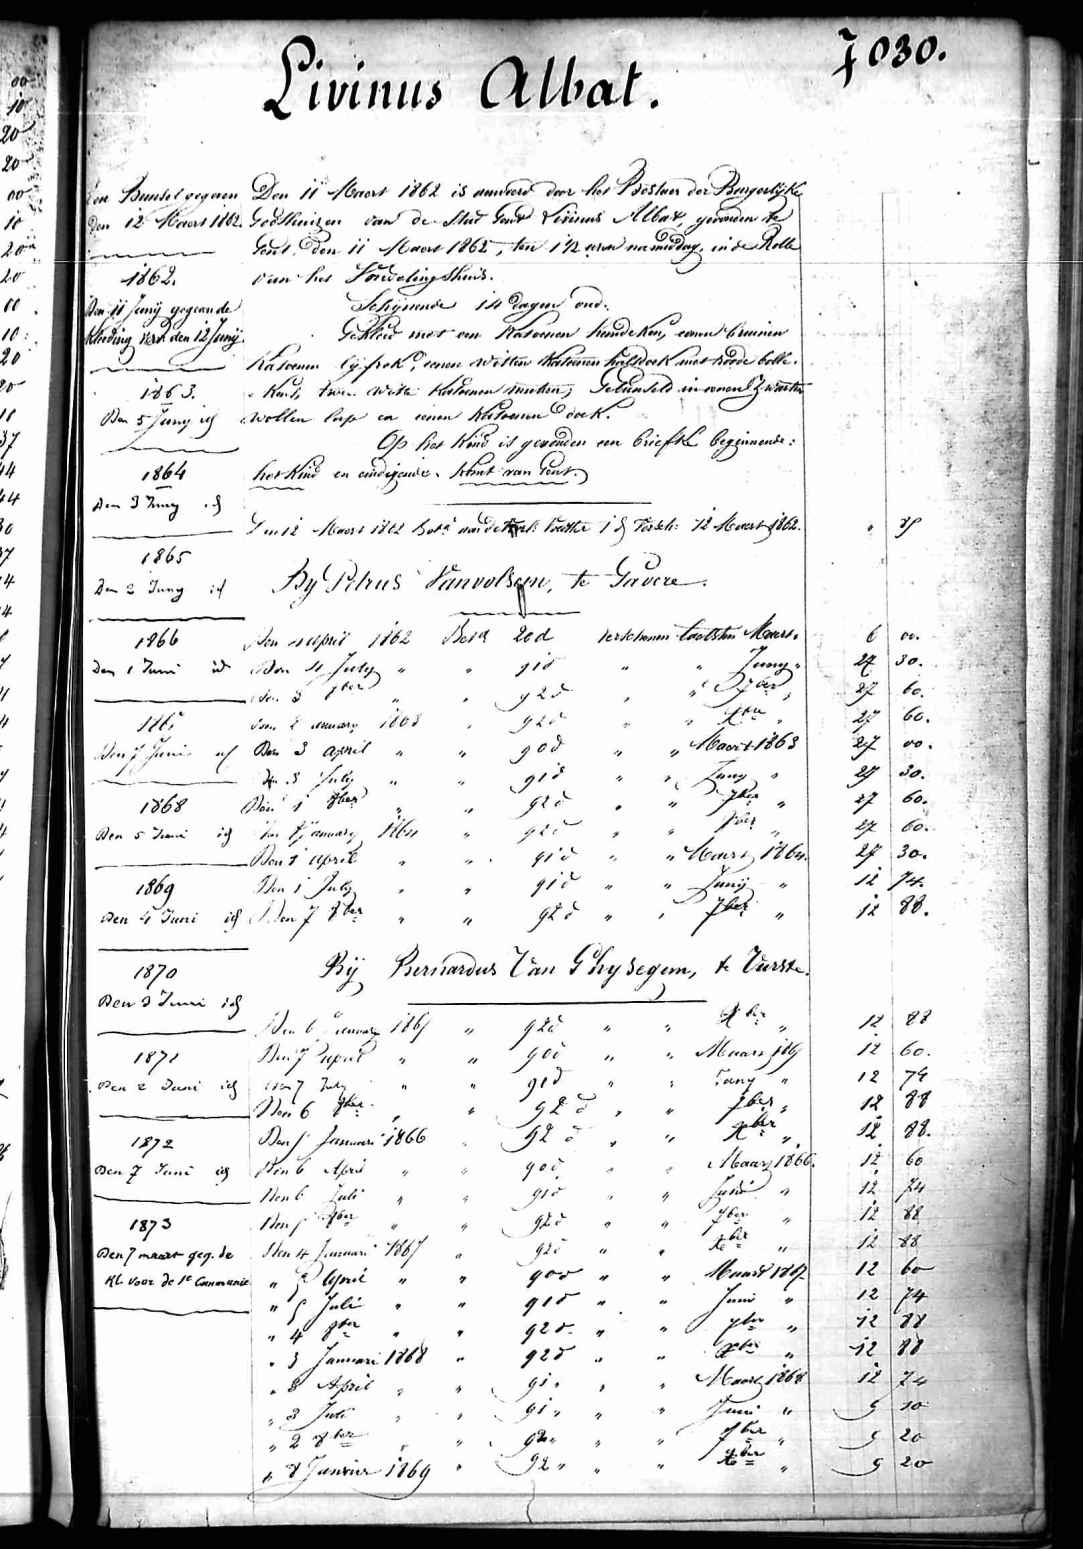 f 030.
Livinus Albat.
Den Bunsel gegeven
den 12 Maert 1862.
1862.
Den 11 Junij gegeven de
kleeding versch den 12 Junij.
1863.
Den 5 Junij id
1864
Den 3 Juny id
1865
Den 2 Juny id
1866
Den 1 Juni id
Den 7 Juni id
1868
Den 5 Juni id
1869
Den 4 Juni id
1870
Den 3 Juni id
1871
Den 2 Juni id
1872
Den 7 Juni id
1873
Den 7 maart geg. de
kl. voor de 1e Communie
Den 11 Maert 1862 is aenveerd door het Bestuer der Burgerlijke
Godshuizen van de Stad Gend Livinus Albat, gevonden te
Gent den 11 Maert 1862, ten 1 1/2 uren namiddag, in de Rolle
van het Vondelingshuis.
Schijnende 14 dagen oud.
Gekleed met een Katoenen hemdeken, eenen bruinen
Katoenen lijfrok, eenen witten Katoenen halsdoek met roode bolle.
twee witte Katoenen mutsen, Gebunseld in eenen zwarten
wollen lap en eenen Katoenen doek.
Op het Kind is gevonden een briefke beginnende:
het Kind en eindigende. komt van Gent.
Den 12 Maert 1862 Bet. aan de 1 d versch: 12 Maert 1862.
By Petrus Vanvolsem, te Gavere.
Den April 1862 Bet. 20 d verschenen laetsten Maert. 6 00.
Den 4 July " " 91 d " " Juny " 27 30.
Den 3 8ber " " 92 d " " 7ber " 27 60.
Den 2 January 1863 " 92 d " " Xber " 27 60.
Den 3 April " " 90 d " " Maert 1863 27 00.
Den 3 July " " 91 d " " Juny " 27 30.
Den 1 8ber " " 92 d " " 7ber " 27 60.
January 1864 " 92 d " " Xber " 27 60.
Den 1 April " " 91 d " " Maert 1864. 27 30.
Den 1 July " " 91 d " " Junij " 12 74.
Den 7 8ber " " 92 d " " 7ber " 12 88.
Bij Bernardus Van Ghysegem, te Vurste.
Den 6 January 1865 " 92 d " " Xber " 12 88
Den 7 April " " 90 d " " Maart 12 60.
Den 7 July " " 91 d " " Juny " 12 74
Den 6 8ber " " 92 d " " 7ber " 12 88
Den 5 Januari 1866 " 92 d " " Xber " 12 88.
Den 6 April " " 90 d " " Maart 1866. 12 60
Den 6 Juli " " 91 d " " Juni " 12 74
Den 5 8ber " " 92 d " " 7ber " 12 88
Den 4 Januari 1867 " 92 d " " Xber " 12 88
" 5 April " " 90 d " " Maart 1867. 12 60
" 5 Juli " " 91 d " " Juni " 12 74
" 4 8ber " " 92 d " " 7ber " 12 88
" 3 Januari 1868 " 92 d " " Xber " 12 88
" 8 April " " 91 " " " Maart 1868 12 74
" 3 Juli " " 91 " " " Juni " 9 10
" 2 8ber " " 92 " " " 7ber " 9 20
" 8 Janvier 1869 " 92 " " " Xber " 9 20